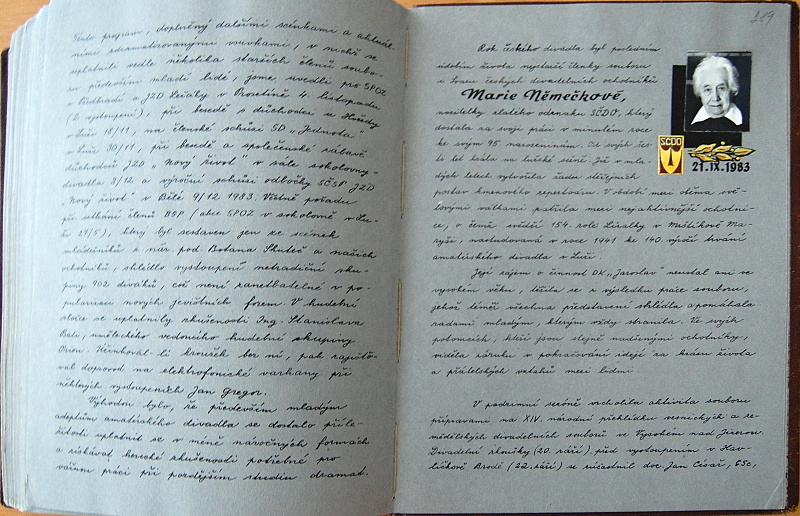 Tento program, doplněný dalšími scénkami a aktuál-
ními zdramatizovanými vsuvkami, v nichž se
uplatnili vedle několika starších členů soubo-
ru především mladí lidé, jsme uvedli pro SPOZ
v Předhradí a JZD Ležáky v Prosetíně 4. listopadu
(2 vystoupení), při besedě s důchodci ze
v Luži 18/11, na členské schůzi SD „Jednota"
v Luži 30/11, při besedě a společenské zábavě
důchodců JZD „Nový život" v sále sokolovny-
divadla 3/12 a výroční schůzi odbočky SČSP JZD
„Nový život" v Bělé 9/12 1983. Včetně pořadu
při setkání členů BSP / akce SPOZ v sokolovně v Lu-
ži 29/5), který byl sestaven jen ze scének
mládežníků z nár. pod. Botana Skuteč a našich
ochotníků, shlédlo vystoupení netradiční sku-
piny 902 diváků, což není zanedbatelné v po-
pularizaci nových jevištních forem. V hudební
složce se uplatnily zkušenosti Ing. Stanislava
Bati, uměleckého vedoucího hudební skupiny
Orion. Účinkoval-li kroužek bez ní, pak zajišťo-
val doprovod na elektrofonické varhany při
některých vystoupeních Jan Gregor.
Výhodou bylo, že především mladým
adeptům amatérského divadla se dostalo příle-
žitosti uplatnit se v méně náročných formách
a získávat herecké zkušenosti potřebné pro
vážnou práci při pozdějším studiu dramat.
289
Rok českého divadla byl posledním
údobím života nejstarší členky souboru
i Svazu českých divadelních ochotníků
Marie Němečkové,
nositelky zlatého odznaku SČDO, který
dostala za svoji práci v minulém roce
ke svým 95. narozeninám. Od svých šes-
ti let hrála na lužské scéně. Již v mla-
dých letech vytvořila řadu stěžejních
postav kmenového repertoáru. V období mezi oběma svě-
tovými válkami patřila mezi nejaktivnější ochotni-
ce, o čemž svědčí 154. role Lízalky v Mrštíkově Ma-
ryše, nastudovaná v roce 1941 ke 140. výročí trvání
amatérského divadla v Luži.
Její zájem o činnost DK „Jaroslav" neustal ani ve
vysokém věku, těšila se z výsledků práce souboru,
jehož téměř všechna představení shlédla a pomáhala
radami mladým, kterým vždy stranila. Ve svých
potomcích, kteří jsou stejně nadšenými ochotníky,
viděla záruku v pokračování idejí za krásu života
a přátelských vztahů mezi lidmi.
V podzimní sezóně vrcholila aktivita souboru
přípravami na XIV. národní přehlídku vesnických a ze-
mědělských divadelních souborů ve Vysokém nad Jizerou.
Divadelní zkoušky (20. září) před vystoupením v Hav-
líčkově Brodě (22. září) se zúčastnil doc. Jan Císař, CSc.,
SČDO
21. IX. 1983